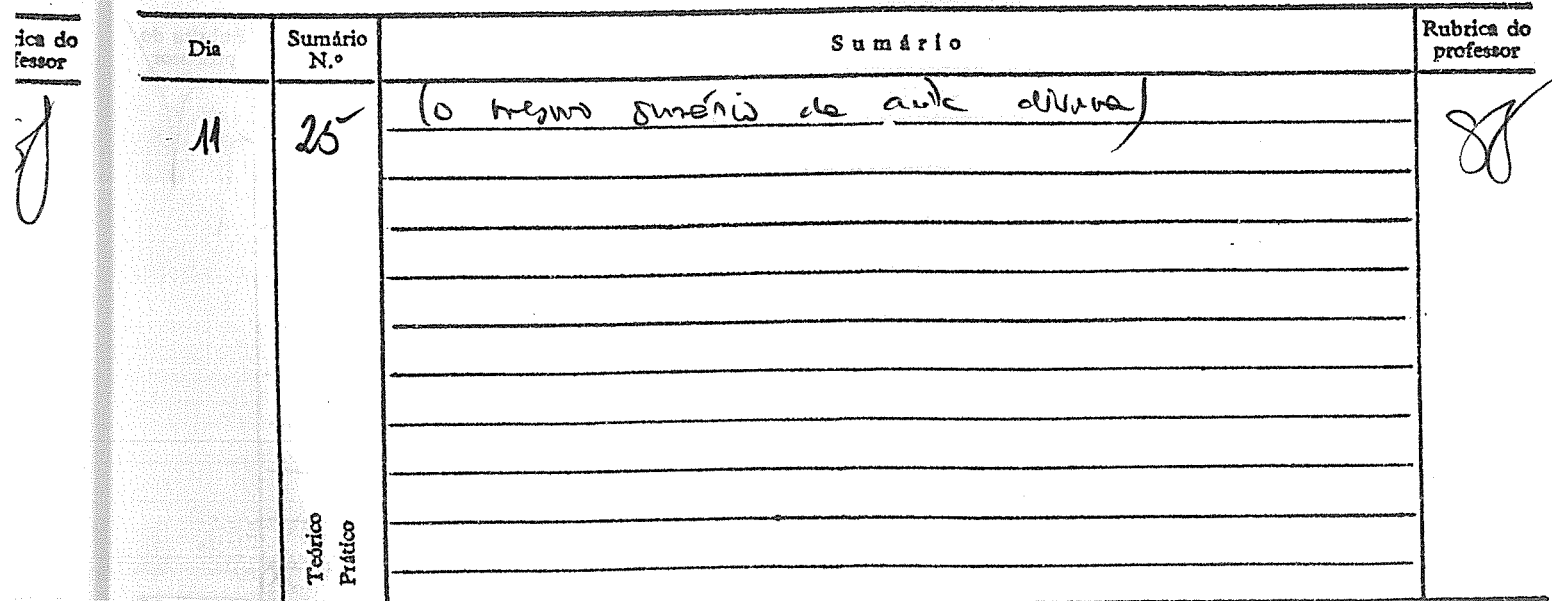 rica do
fessor
Dia
Sumário
N.º
Sumário
Rubrica do
professor
11
25
(o mesmo sumário da aula diurna)
Teórico
Prático